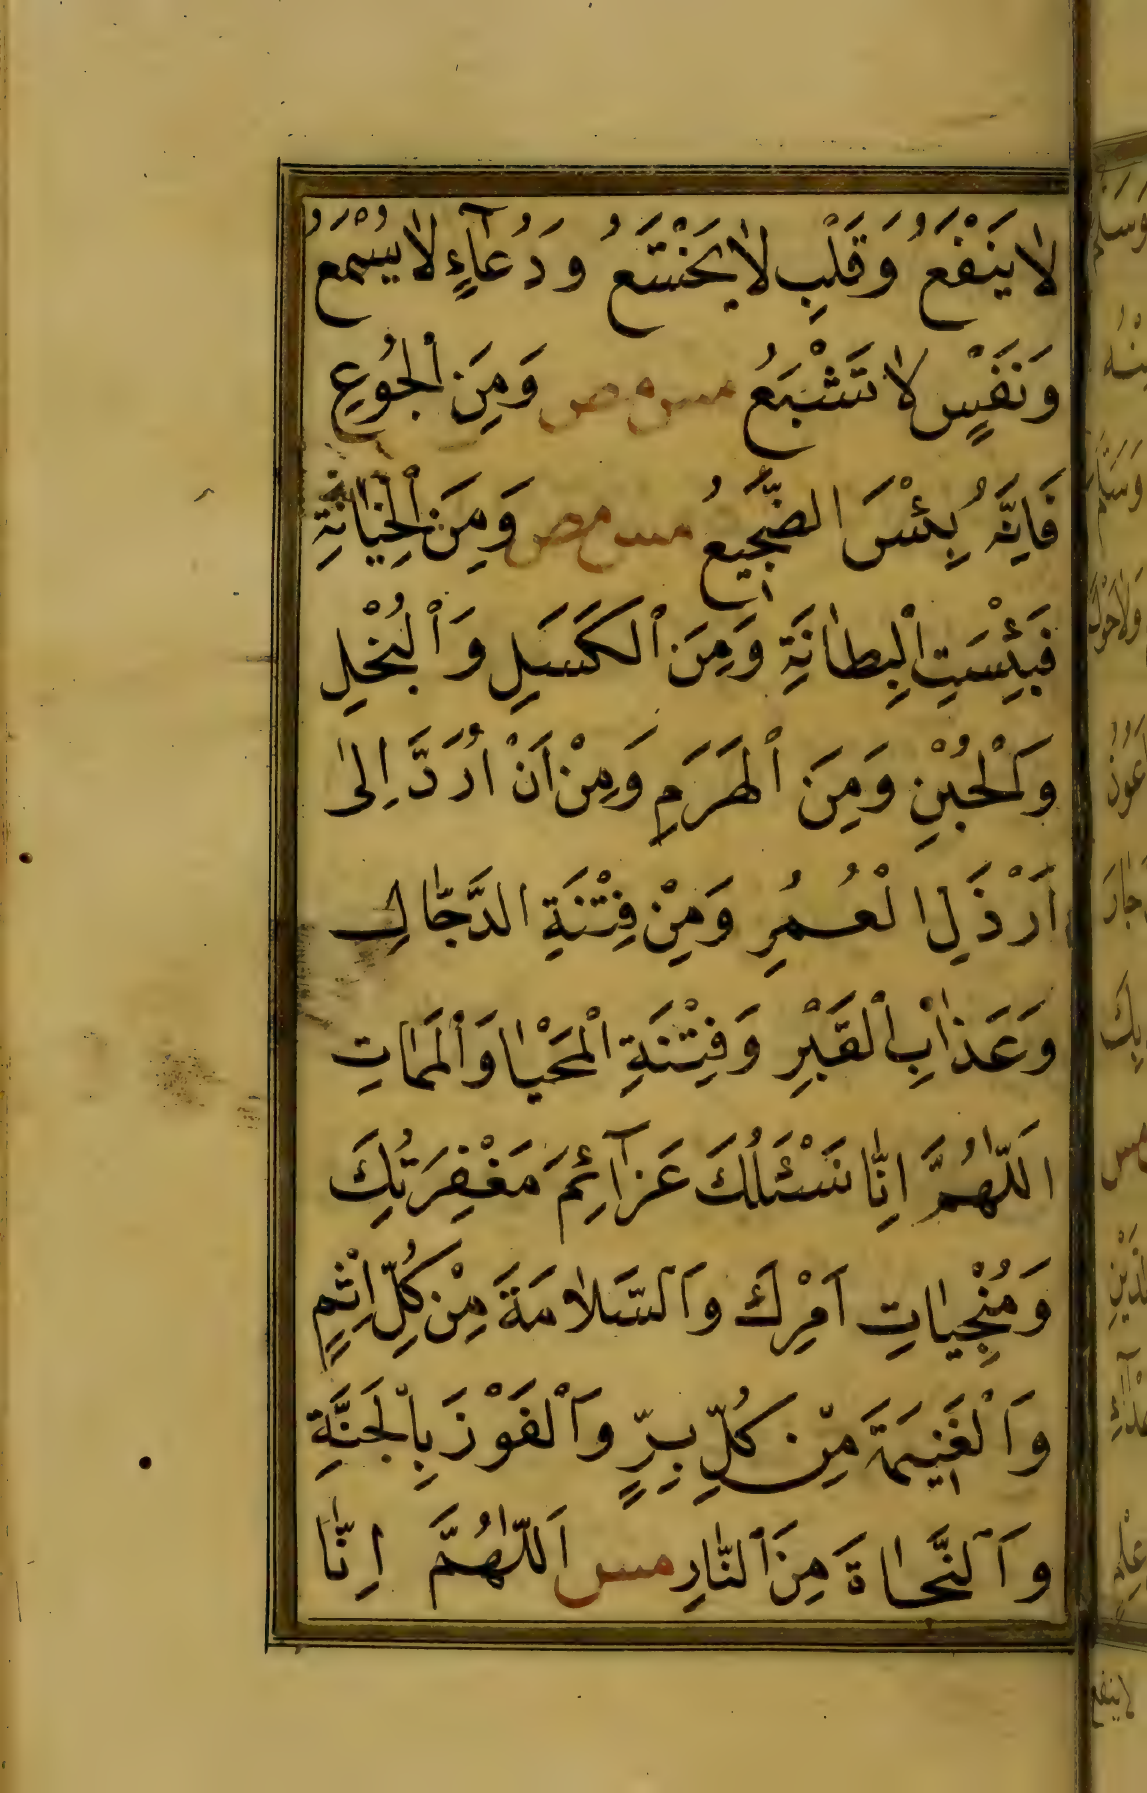 لَا يَنْفَعُ وَقَلْبٍ لَا يَخْشَعُ وَدُعَآءٍ لَا يُسْمَعُ
وَنَفْسٍ لَا تَشْبَعُ مس مص وَمِنَ الْجُوعِ
فَاِنَّهُ بِئْسَ الضَّجِيعُ مس مص وَمِنَ الْخِيَانَةِ
فَبِئْسَتِ الْبِطَانَةِ وَمِنَ الْكَسَلِ وَالْبُخْلِ
وَالْجُبْنِ وَمِنَ الْهَرَمِ وَمِنْ اَنْ اُرَدَّ اِلٰى
اَرْذَلِ الْعُمُرِ وَمِنْ فِتْنَةِ الدَّجَّالِ
وَعَذَابِ الْقَبْرِ وَفِتْنَةِ الْمَحْيَا وَالْمَمَاتِ
اَللّٰهُمَّ اِنَّا نَسْئَلُكَ عَزَآئِمَ مَغْفِرَتِكَ
وَمُنْجِيَاتِ اَمْرِكَ وَالسَّلَامَةَ مِنْ كُلِّ اِثْمٍ
وَالْغَنِيمَةَ مِنْ كُلِّ بِرٍّ وَالْفَوْزَ بِالْجَنَّةِ
وَالنَّجَاةَ مِنَ النَّارِ مس اَللّٰهُمَّ اِنَّا